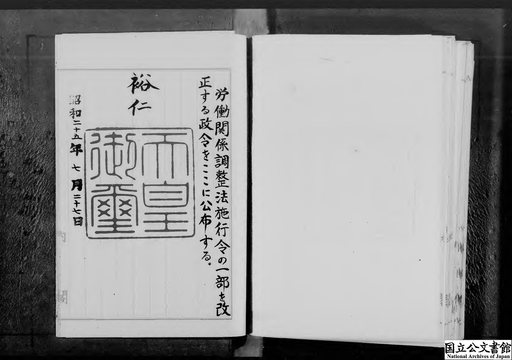 労働関係調整法施行令の一部を改
正する政令をここに公布する。
裕仁
天皇
御璽
昭和二十五年七月二十七日
国立公文書館
National Archives of Japan